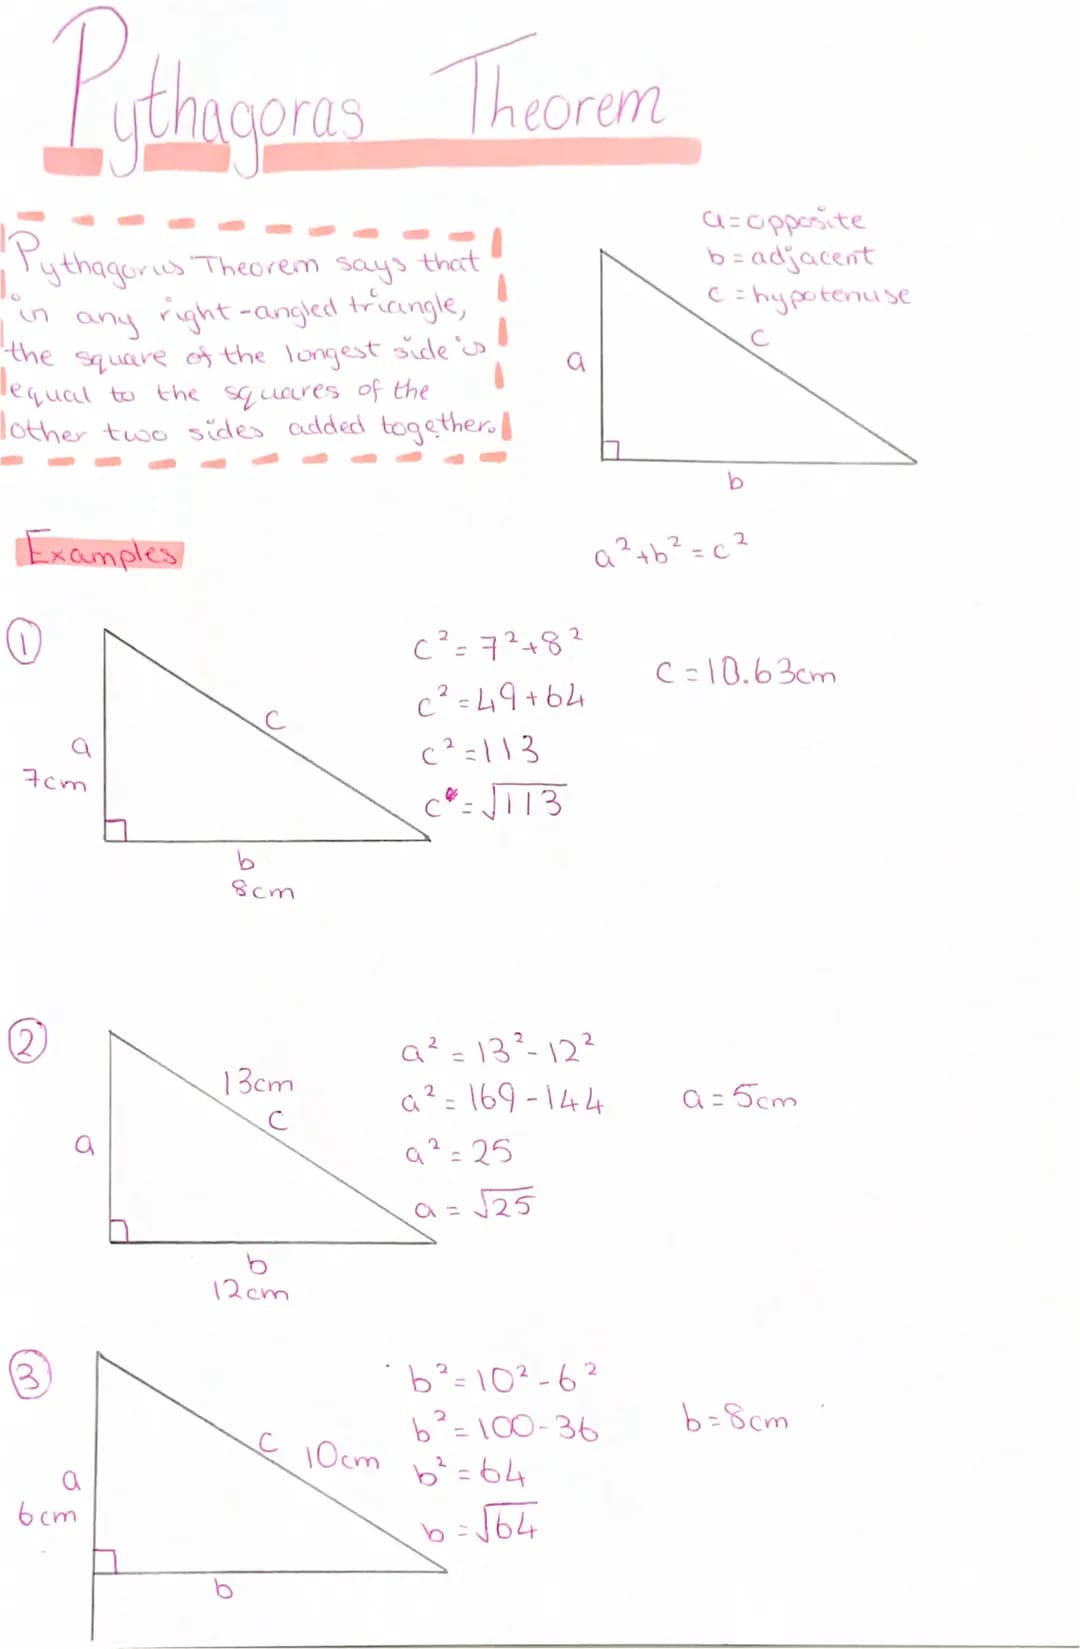 Pythagoras Theorem
Pythagorus Theorem says that
in any right-angled triangle,
the square of the longest side is
equal to the squares of the
other two sides added together.
a=opposite
b=adjacent
c=hypotenuse
c
a
b
a²+b²=c²
Examples
1
c
a
7cm
b
8cm
c²=7²+8²
c²=49+64
c²=113
c=√113
c=10.63cm
2
13cm
c
a
b
12cm
a²=13²-12²
a²=169-144
a²=25
a=√25
a=5cm
3
c
10cm
a
6cm
b
b²=10²-6²
b²=100-36
b²=64
b=√64
b=8cm